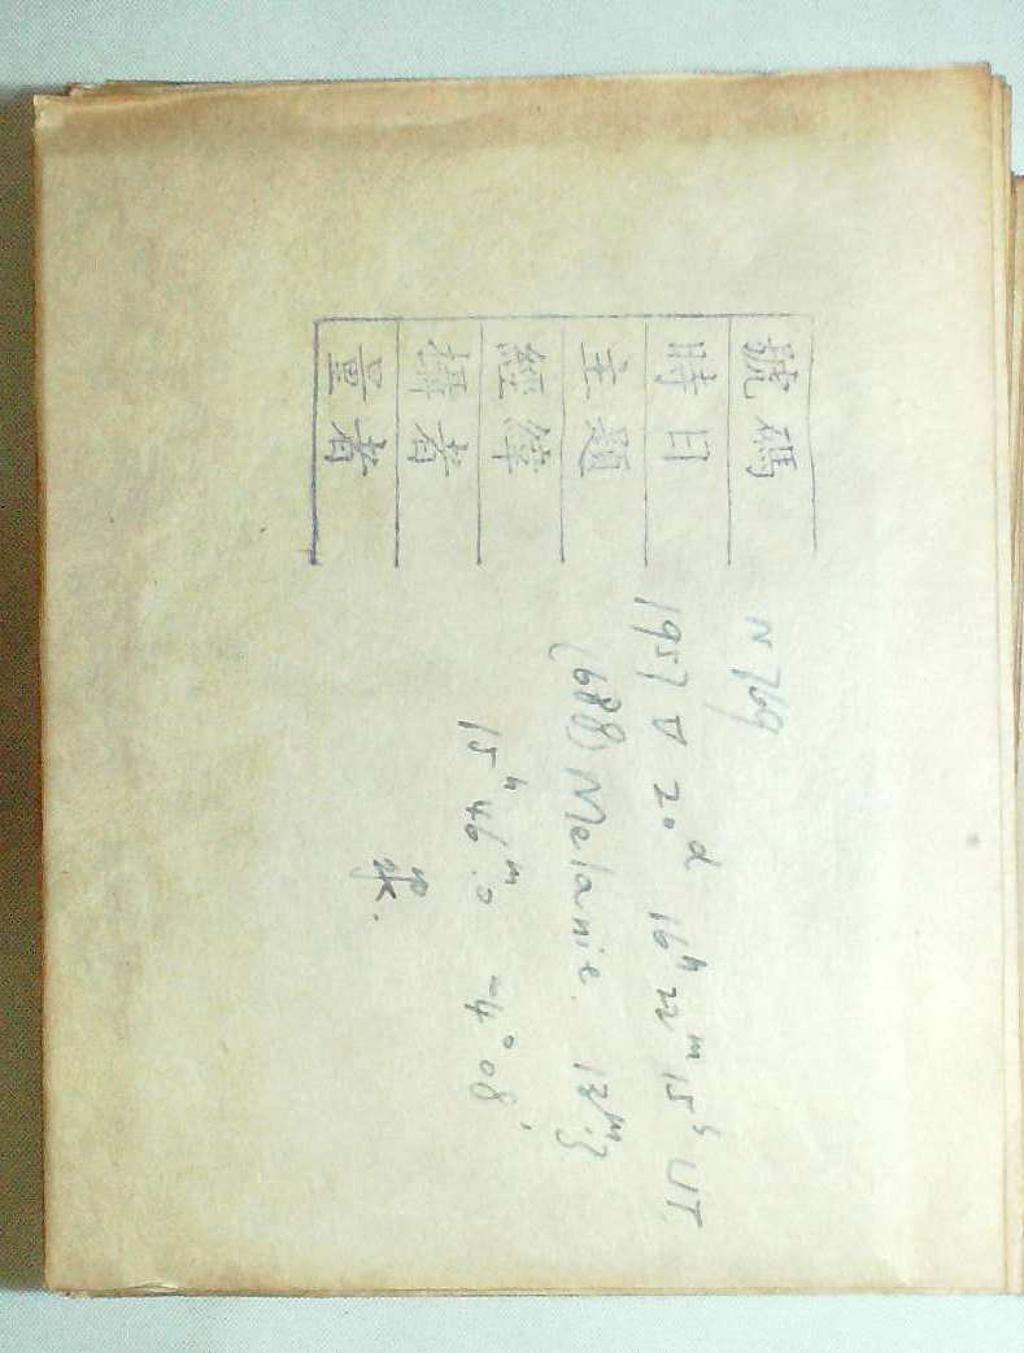 號碼 N 769
時日 1957 V 20ᵈ 16ʰ 22ᵐ 15ˢ UT
主題 (688) Melanie. 13ᵐ.3
經緯 15ʰ 46ᵐ.0 -4° 08'
攝者
量者